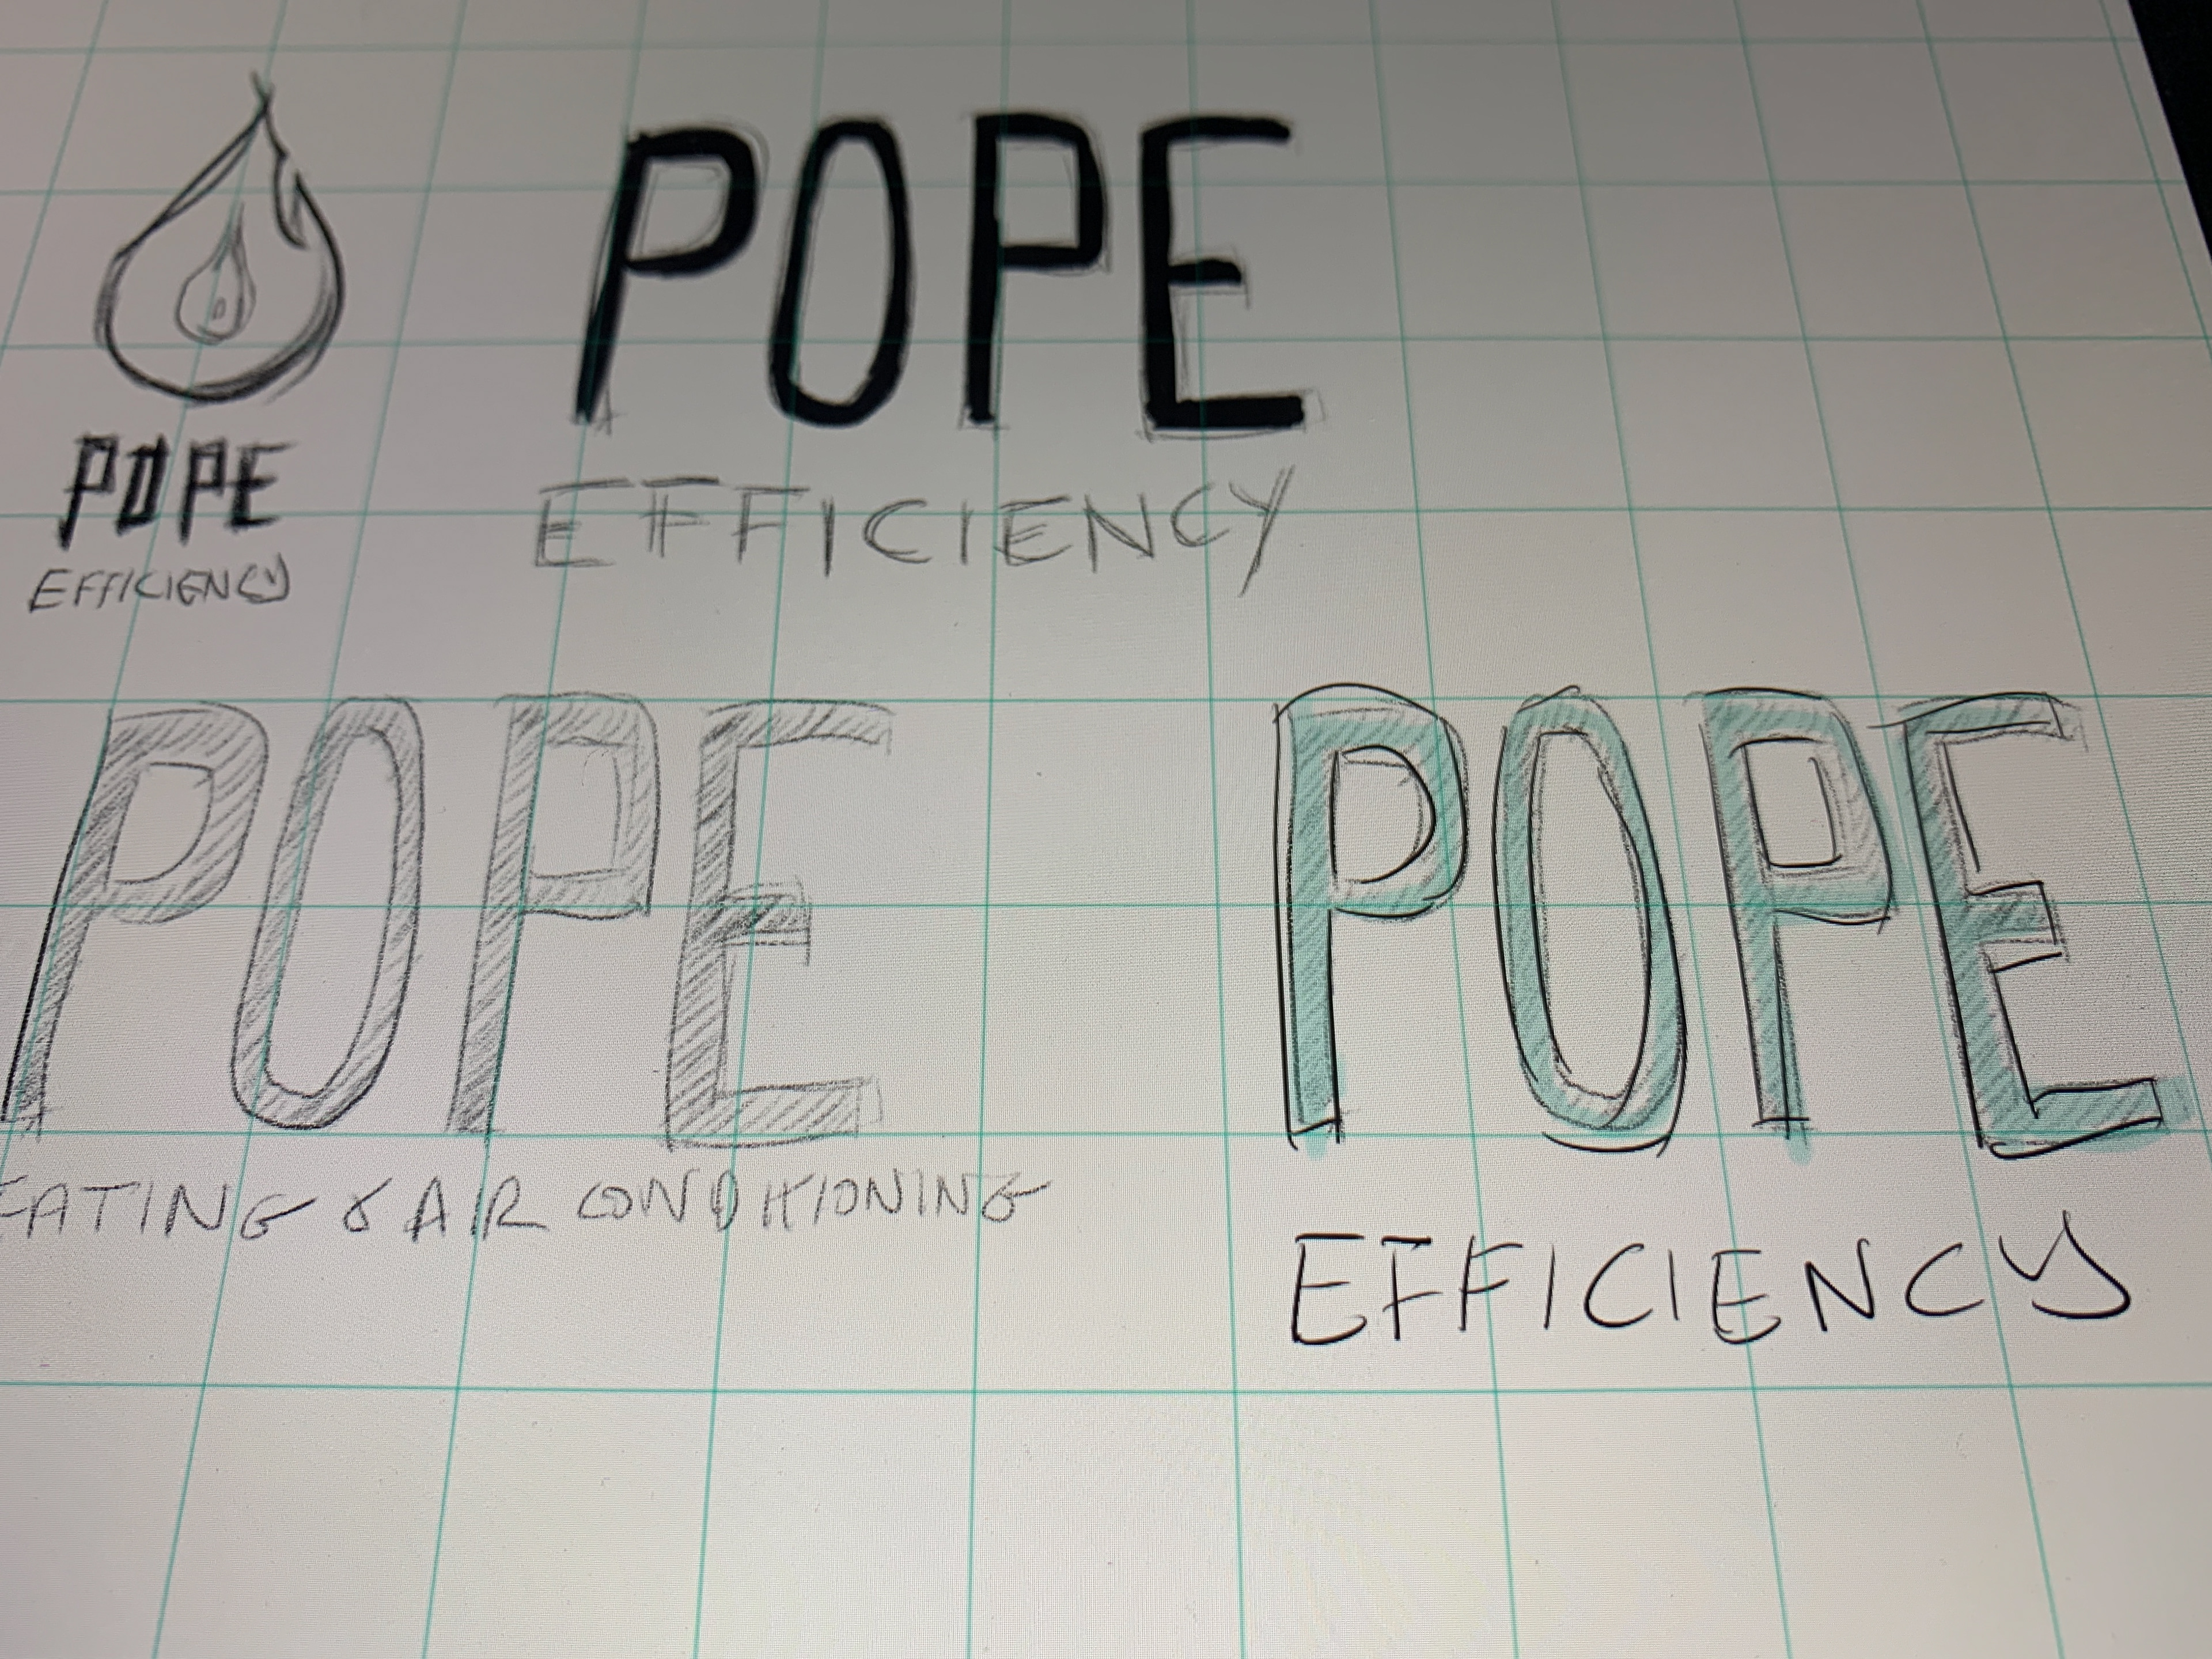 POPE
EFFICIENCY
POPE
EFFICIENCY
POPE
EATING & AIR CONDITIONING
POPE
EFFICIENCY